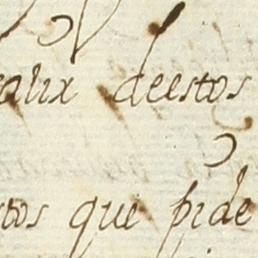 alix deestos
tos que pide